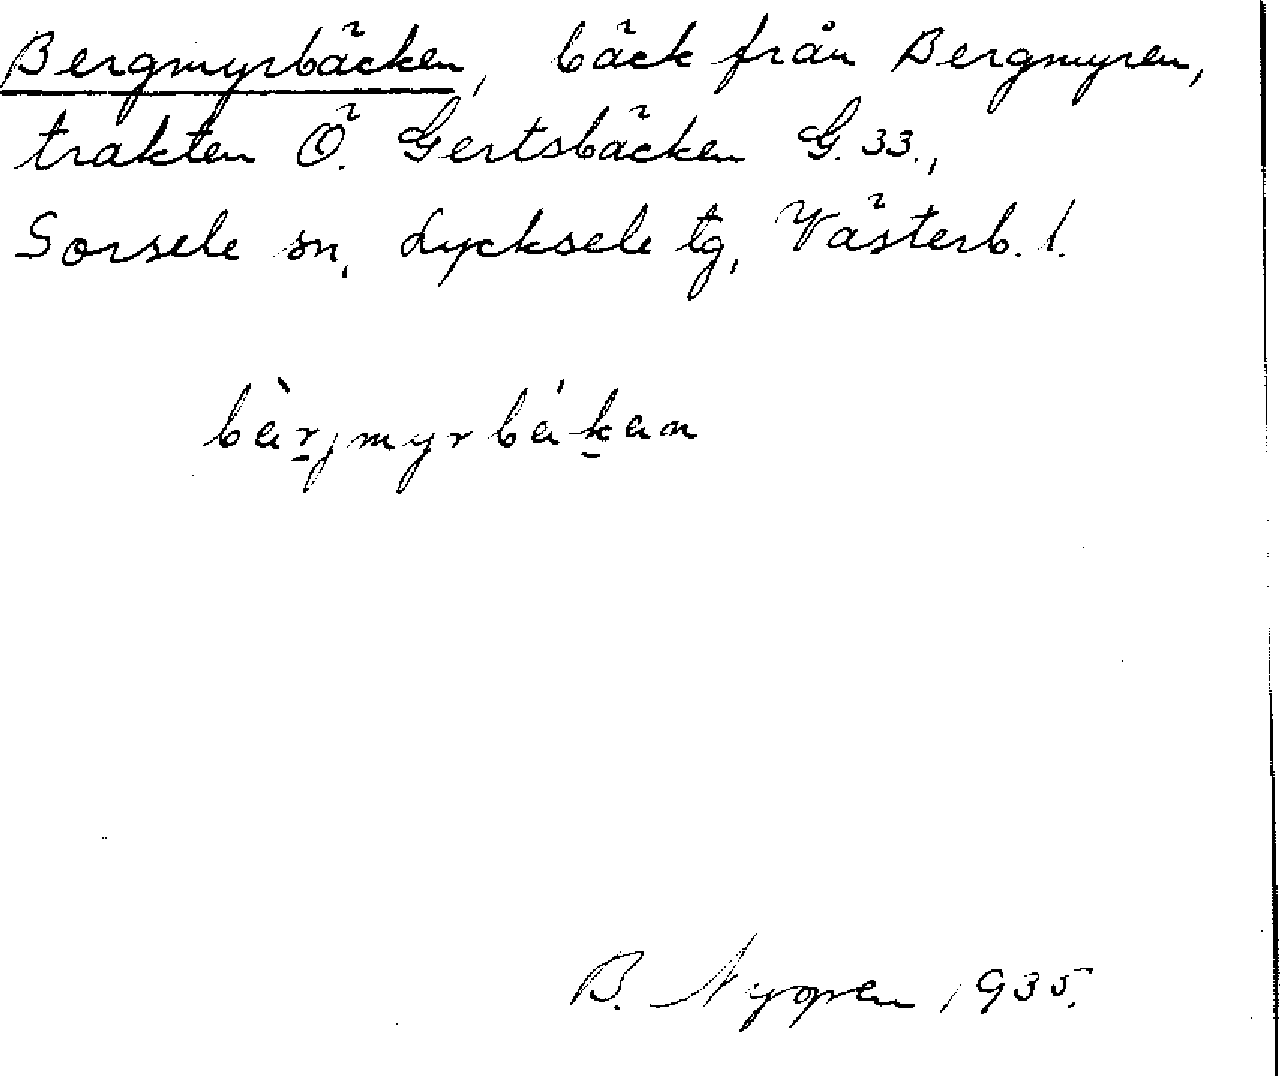 Bergmyrbäcken, bäck från Bergmyren,
trakten Ö. Gertsbäcken G. 33.,
Sorsele sn, Lycksele tg, Västerb. l.
bèr̲jmyrbék̲en
B. Nygren 1935.